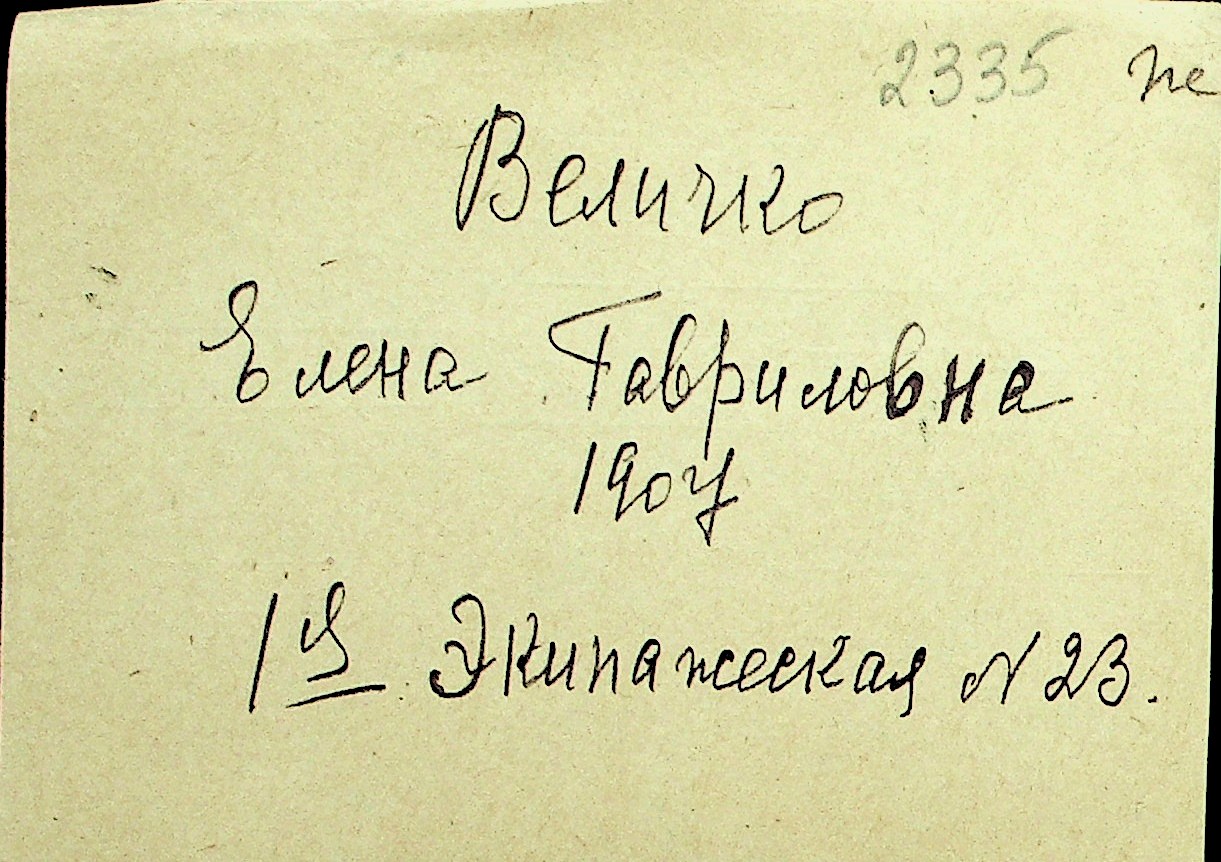 2335
Величко
Елена Гавриловна
1907
1я Экипажеская N 23.